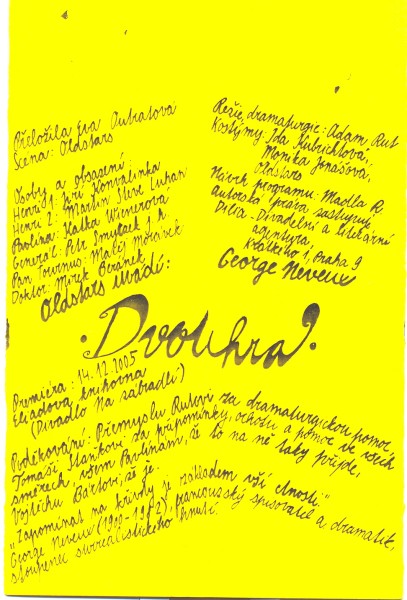 Přeložila Eva Outratová
Scéna: Oldstars
Osoby a obsazení:
Henri 1: Jiří Konvalinka
Henri 2: Martin Steve Luhan
Paolina: Katka Wienerová
Generál: Petr Smyczek j. h.
Pan Tournus: Matěj Morávek
Doktor: Mirek Beránek
Oldstars uvádí:
Režie, dramaturgie: Adam Rut
Kostýmy: Ida
Monika Jonášová,
Oldstars
Návrh programu: Madla R.
autorská práva zastupuje
Dilia - Divadelní a literární
agentura
Krátkého 1, Praha 9
George Neveux
Dvouhra
Premiéra: 14.12.2005
Eliadova knihovna
(Divadlo Na zábradlí)
Poděkování: Přemyslu Rutovi za dramaturgickou pomoc,
Tomáši Staňkovi za připomínky, ochotu a pomoc ve všech
směrech, všem Pavlínám, že to na ně taky přijde,
Vojtěchu Bártovi, že je.
"Zapomínat na křivdy je základem vší ctnosti."
George Neveux (1900-1982), francouzský spisovatel a dramatik,
stoupenec surrealistického hnutí.